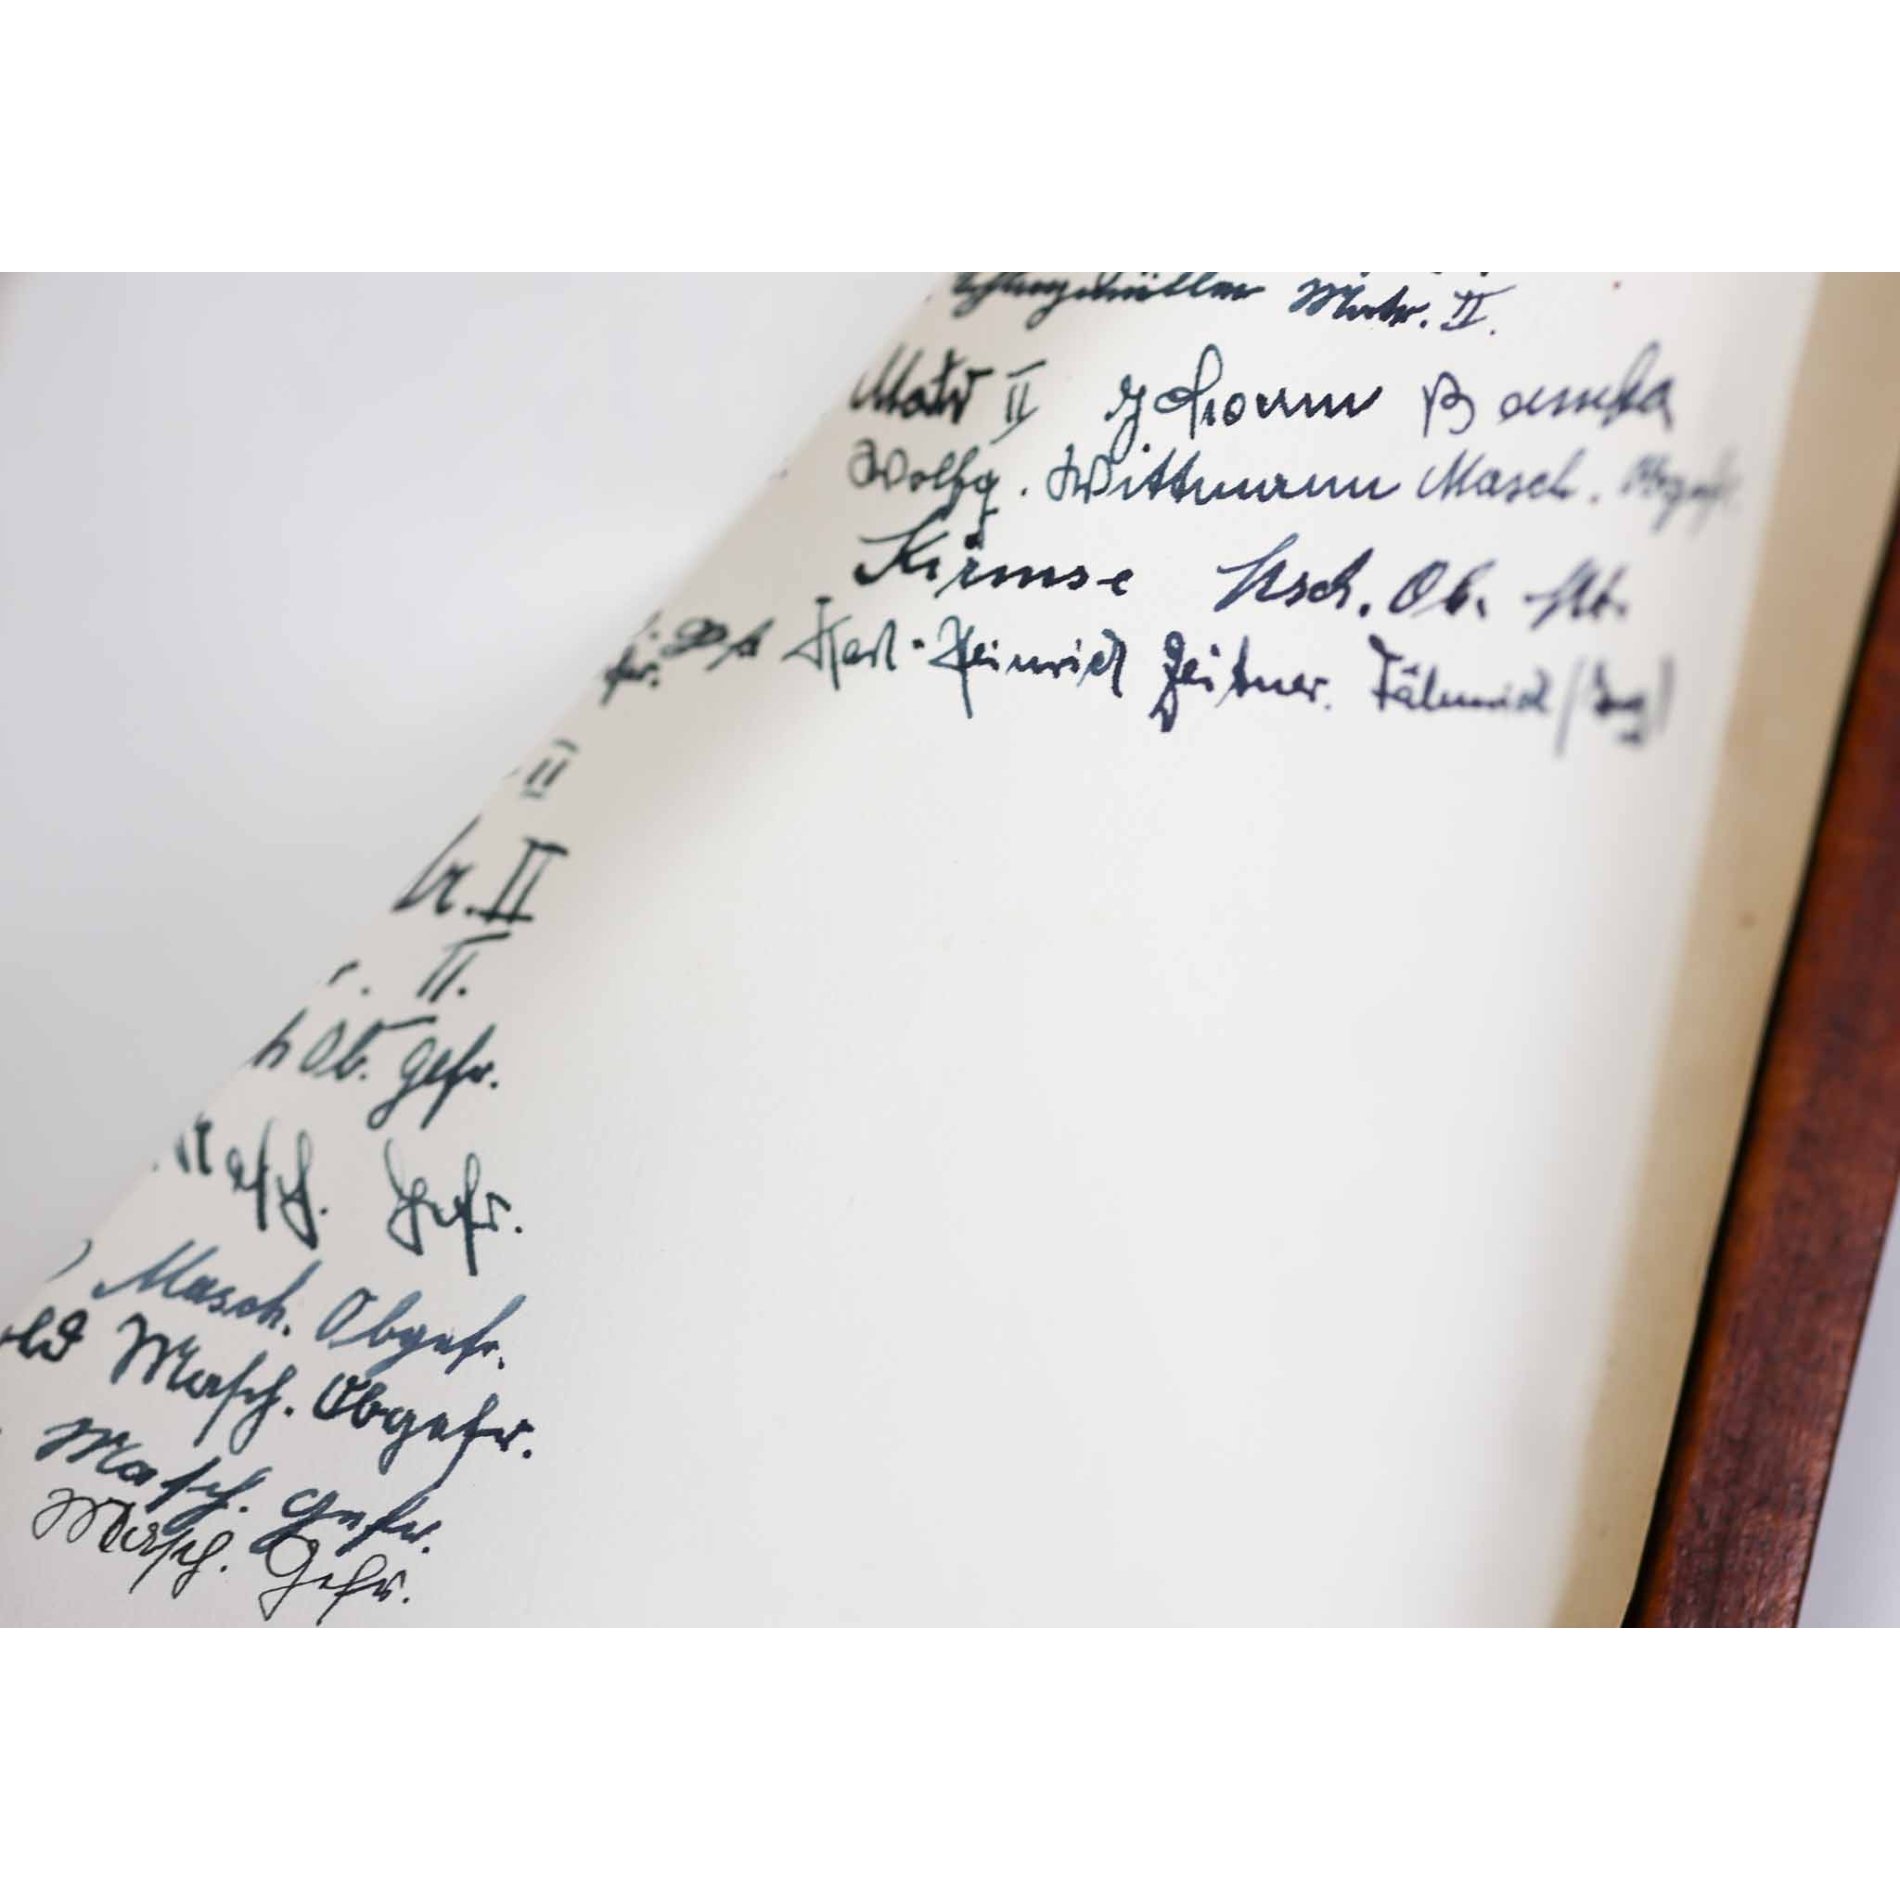 Matr. II.
Matr II Johann
Wolfg. Wittmann Masch. Obgefr.
Kirmse Masch. Ob.
Karl-Heinrich Zeitner. Fähnrich (Ing)
II
tr. II
r. II.
Ob. gefr.
Masch. Gefr.
Masch. Obgefr.
Masch. Obgefr.
Masch. Gefr.
Masch. Gefr.